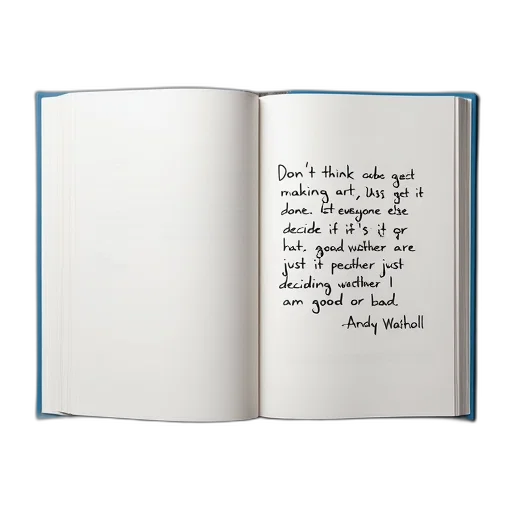 Don't think cube gest
making art, Uss get it
done. Let evsyone else
decide if it's it or
hat. good wsther are
just it pecther just
deciding wecther I
am good or bad.
-Andy Washoll